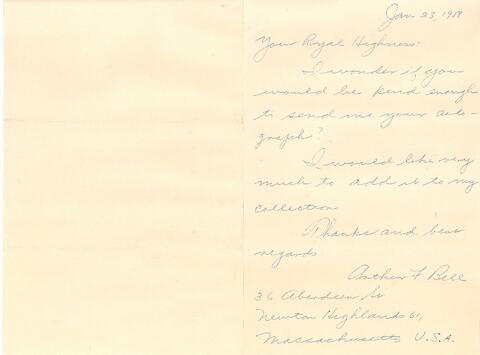 Jan 23, 1959
Your Royal Highness:
I wonder if you
would be kind enough
to send me your auto-
graph?
I would like very
much to add it to my
collection
Thanks and best
regards
Arthur F Bell
36 Aberdeen St
Newton Highlands 61,
Massachusetts U.S.A.